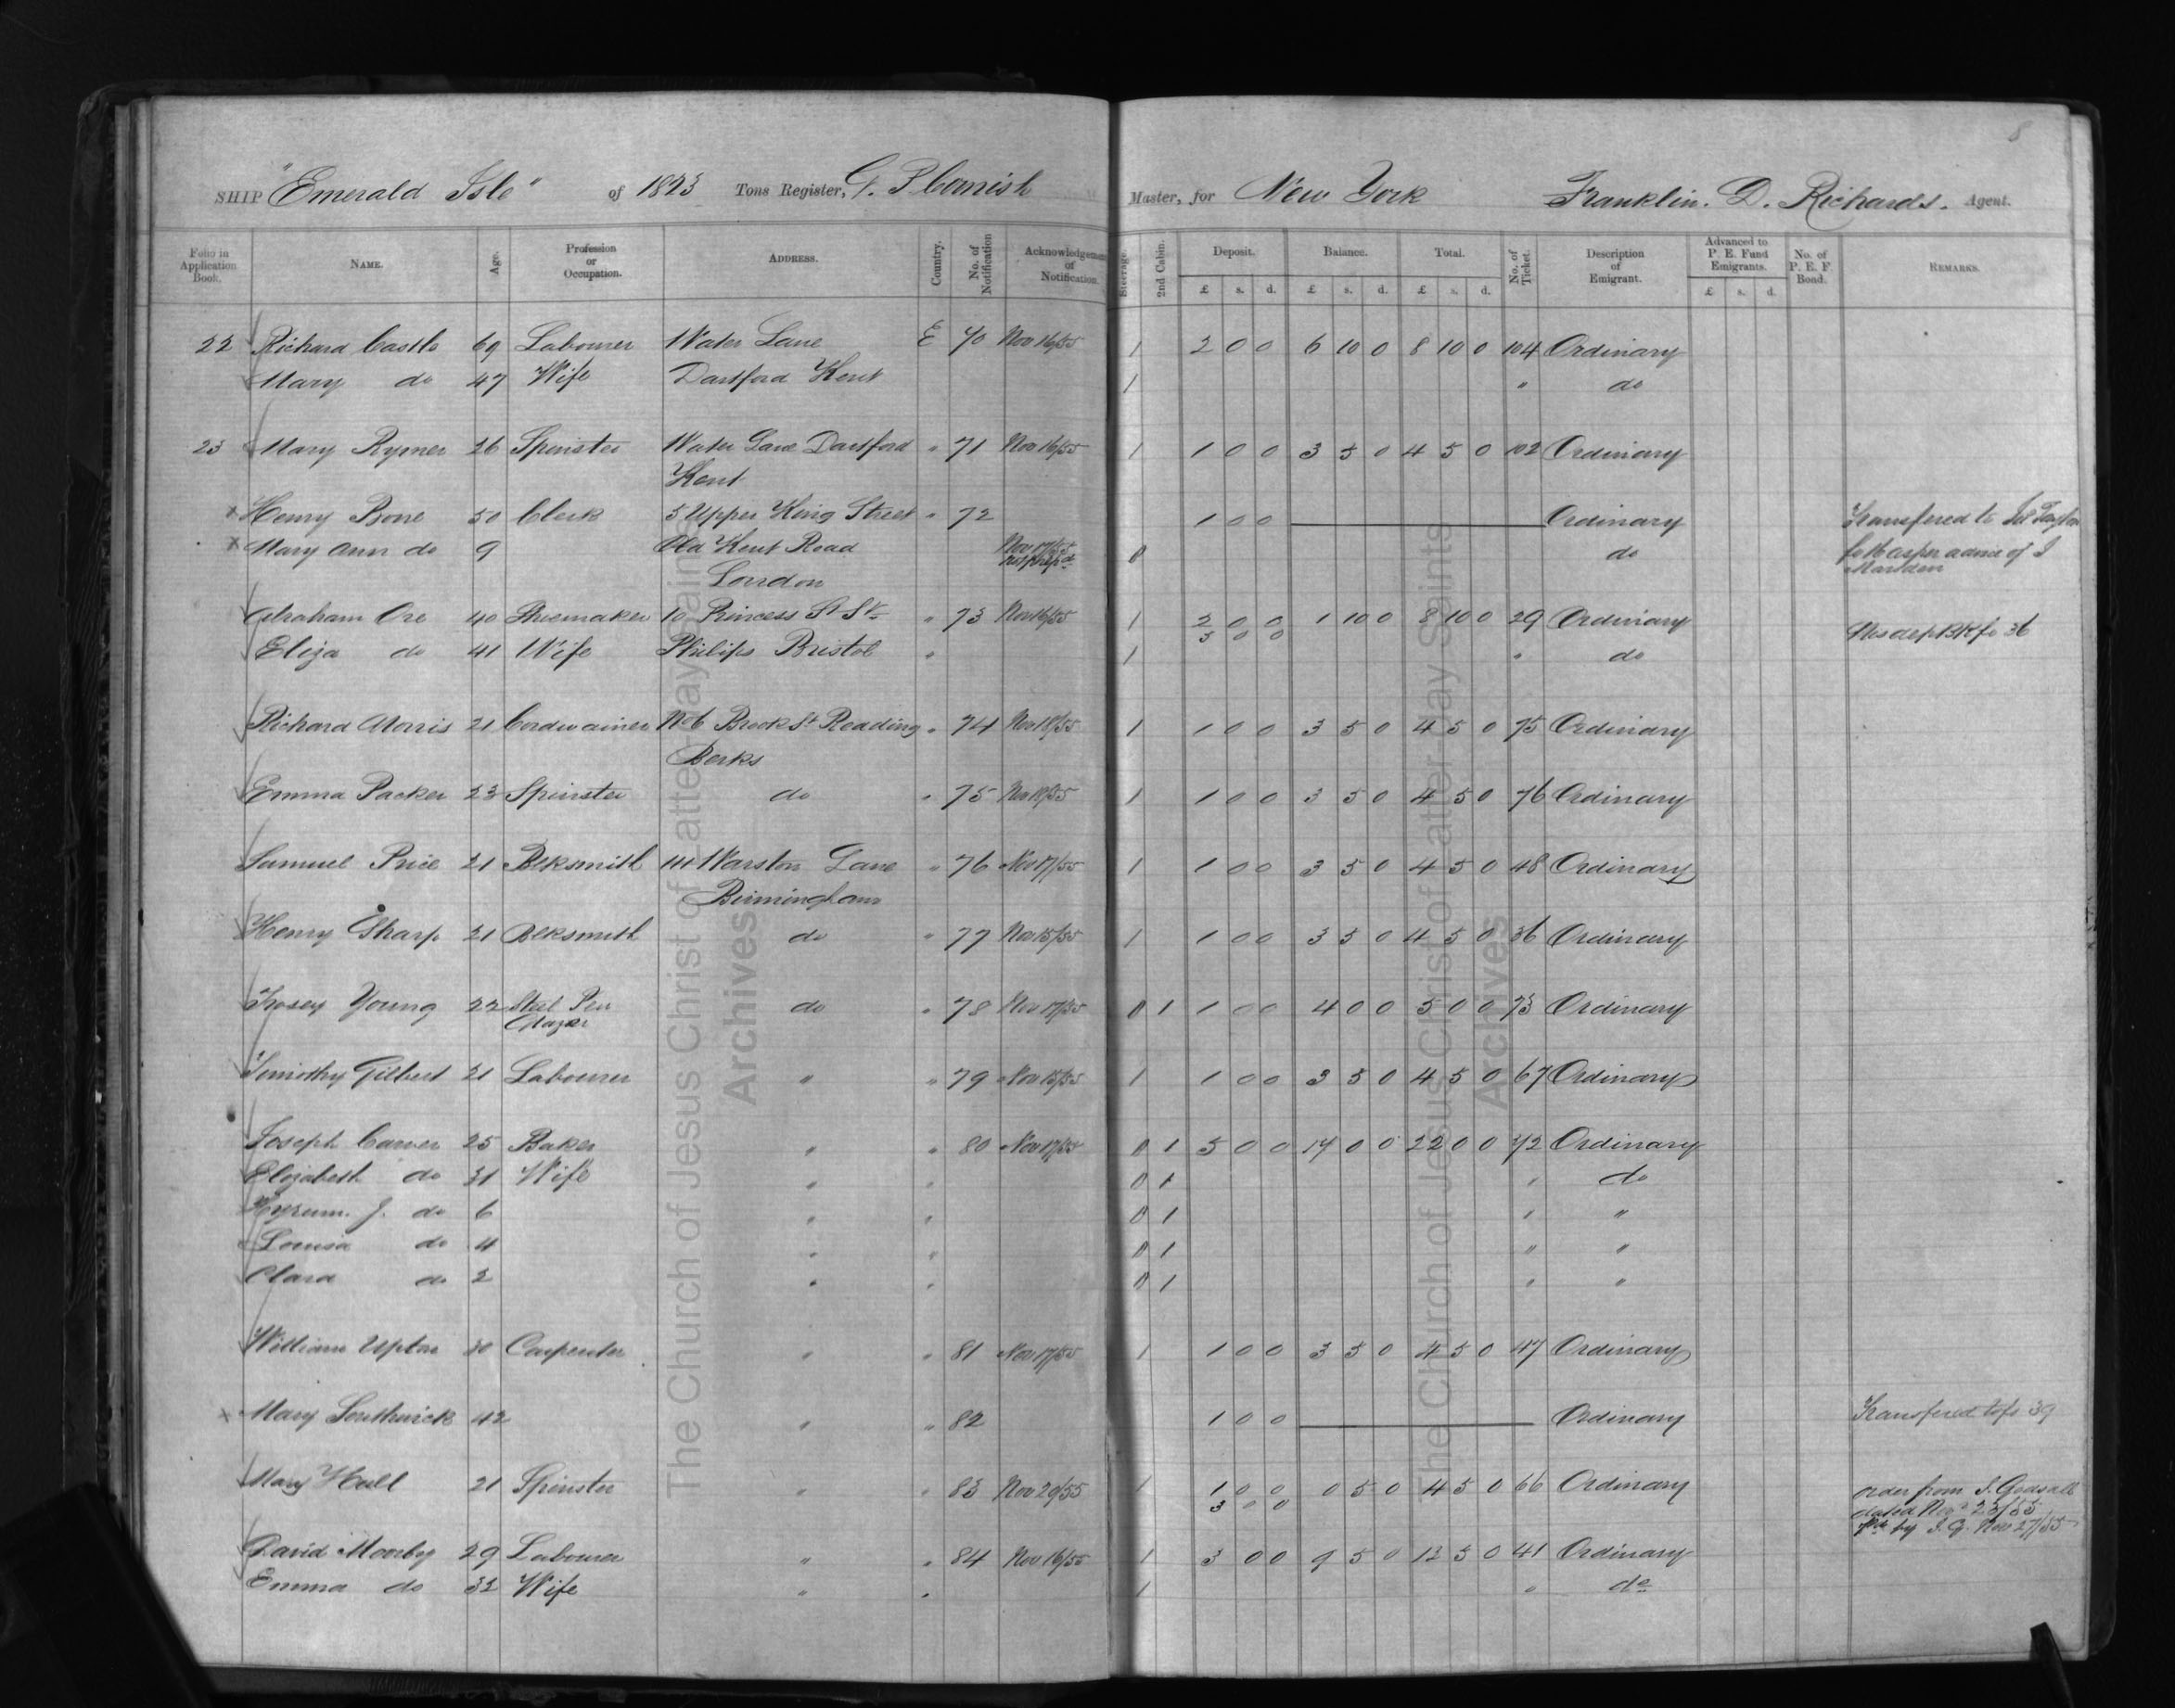 8
SHIP "Emerald Isle" of 1823 Tons Register, G. P Cornish Master, for New York Franklin. D. Richards. Agent.
Folio in Application Book. NAME. Age. Profession or Occupation. ADDRESS. Country. No. of Notification Acknowledgement of Notification. Steerage. 2nd Cabin. Deposit. Balance. Total. No. of Ticket. Description of Emigrant. Advanced to P. E. Fund Emigrants. No. of P. E. F. Bond. REMARKS.
£ s. d. £ s. d. £ s. d. £ s. d.
22 Richard Castle 69 Labourer Water Lane E 70 Nov 16/55 1 2 0 0 6 10 0 8 10 0 104 Ordinary
Mary do 47 Wife Dartford Kent 1 " do
23 Mary Rymer 26 Spinster Water Lane Dartford " 71 Nov 16/55 1 1 0 0 3 5 0 4 5 0 102 Ordinary
Kent
x Henry Bone 50 Clerk 5 Upper King Street " 72 1 0 0 Ordinary Transfered to
x Mary Ann do 9 Old Kent Road Nov 17/55 0 do fo 16 as per advice of J
London Marsden
Abraham Ore 40 Shoemaker 10 Princess St St " 73 Nov 16/55 1 2 0 0 1 10 0 8 10 0 29 Ordinary
5 0 0
Eliza do 41 Wife Philips Bristol " 1 " do fo 36
Richard Morris 21 Cordwainer No 6 Brook St Reading " 74 Nov 18/55 1 1 0 0 3 5 0 4 5 0 75 Ordinary
Berks
Emma Packer 23 Spinster do " 75 Nov 18/55 1 1 0 0 3 5 0 4 5 0 76 Ordinary
Samuel Price 21 Blksmith Warston Lane " 76 Nov 17/55 1 1 0 0 3 5 0 4 5 0 48 Ordinary
Birmingham
Henry Sharp 21 Blksmith do " 77 Nov 15/55 1 1 0 0 3 5 0 4 5 0 36 Ordinary
Young 22 Steel Pen do " 78 Nov 17/55 0 1 1 0 0 4 0 0 5 0 0 73 Ordinary
Timothy Gilbert 21 Labourer " " 79 Nov 15/55 1 1 0 0 3 5 0 4 5 0 67 Ordinary
Joseph Carver 25 Baker " " 80 Nov 17/55 0 1 5 0 0 17 0 0 22 0 0 72 Ordinary
Elizabeth do 31 Wife " " 0 1 " do
Hyrum. J. do 6 " " 0 1 " "
Louisa do 4 " " 0 1 " "
Clara do 2 " " 0 1 " "
William Upton 30 Carpenter " " 81 Nov 17/55 1 1 0 0 3 5 0 4 5 0 47 Ordinary
x Mary Southwick 42 " " 82 1 0 0 Ordinary Transfered to fo 39
Mary Hall 21 Spinster " " 83 Nov 20/55 1 1 0 0 0 5 0 4 5 0 66 Ordinary order from J. Godsall
3 0 0 dated Nov 23/55
by J. G. Nov 27/55
David Moorby 29 Labourer " " 84 Nov 16/55 1 3 0 0 9 5 0 12 5 0 41 Ordinary
Emma do 32 Wife " " 1 " do
The Church of Jesus Christ of Latter-day Saints
Archives
The Church of Jesus Christ of Latter-day Saints
Archives